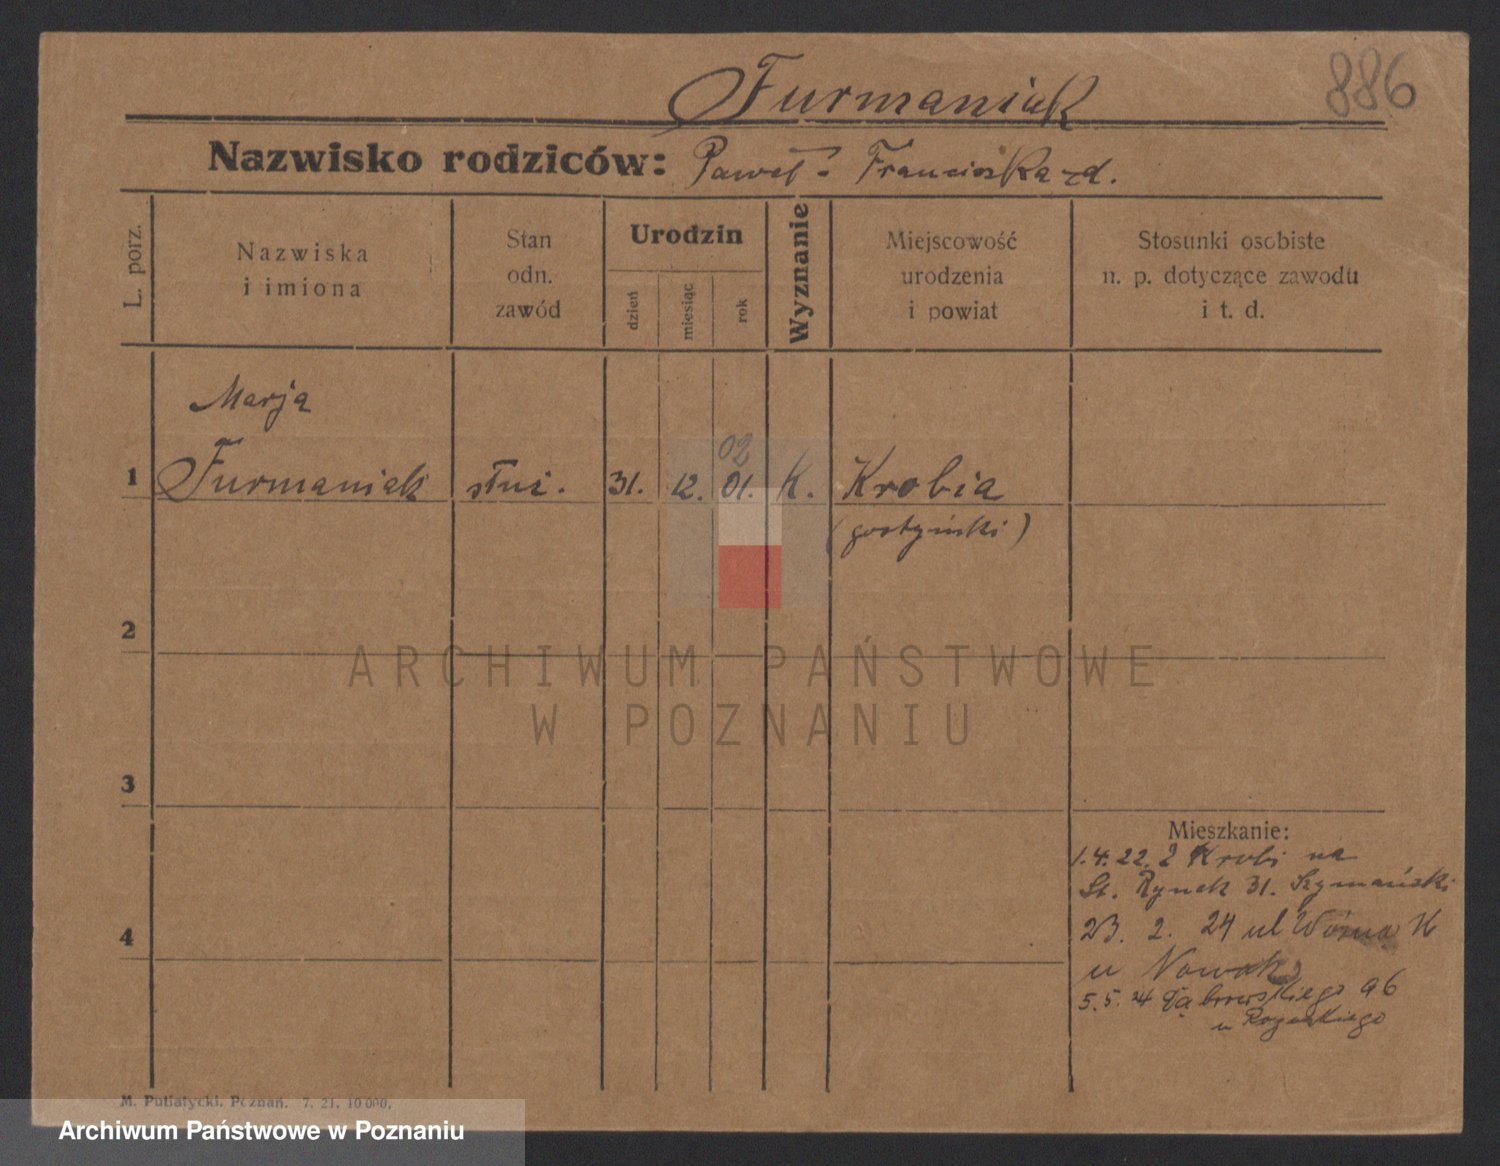 886
Furmaniak
Nazwisko rodziców: Paweł - Franciszka
L. porz.
Nazwiska
i imiona
Stan
odn.
zawód
Urodzin
dzień
miesiąc
rok
Wyznanie
Miejscowość
urodzenia
i powiat
Stosunki osobiste
n. p. dotyczące zawodu
i t. d.
Marja
02
1 Furmaniak służ. 31. 12. 01. K. Krobia
(gostyński)
2
ARCHIWUM PAŃSTWOWE
W POZNANIU
3
Mieszkanie:
1.4.22. z Krobi na
St. Rynek 31. Szymański
4
23. 2. 24 ul Woźna
u Nowak
5.5.24 Dąbrowskiego 96
u
M. Putiatycki, Poznań. 7. 21. 10 000.
Archiwum Państwowe w Poznaniu